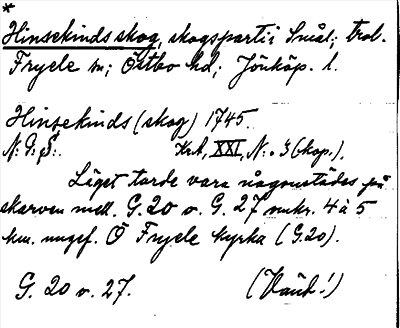 *
Hinsekinds skog, skogsparti i Smål; trol.
Fryele sn; Östbo hd; Jönköp. l.
Hinsekinds (skog) 1745.
N: G: S:. KrA, XXI, N: o 3 (kop.).
Läget torde vara någonstädes på
skarven mell. G. 20 o. G. 27 omkr. 4 à 5
km. ungef. Ö Fryele kyrka (G. 20).
G. 20 o. 27. (Vänd!)